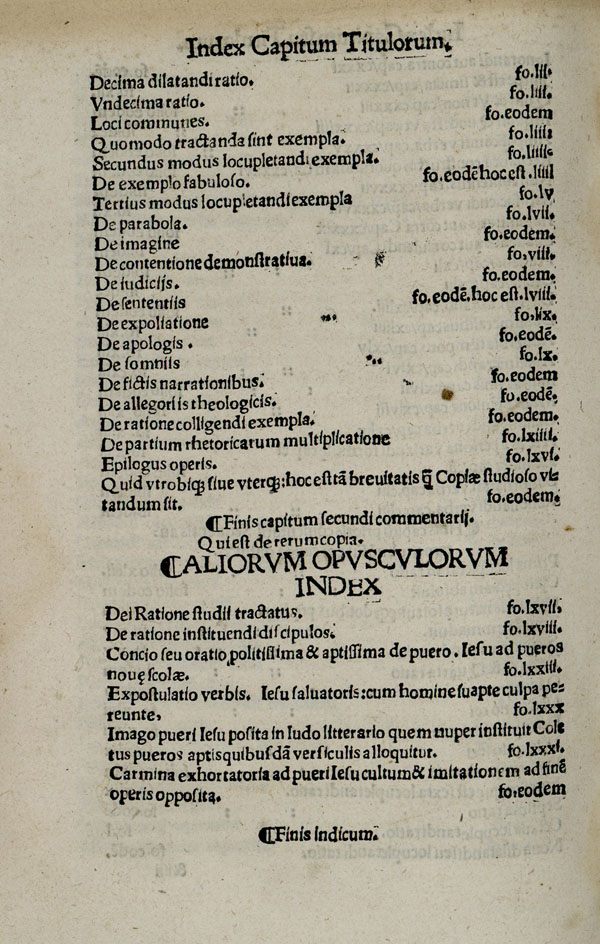 Index Capitum Titulorum.
Decima dilatandi ratio. fo.liii.
Vndecima ratio. fo.liii.
Loci communes. fo.eodem
Quomodo tractanda sint exempla. fo.liiii
Secundus modus locupletandi exempla. fo.liiiii
De exemplo fabuloso. fo.eodē hoc est .liiii
Tertius modus locupletandi exempla fo.lv
De parabola. fo.lvii.
De imagine fo.eodem.
De contentione demonstratiua. fo.viii.
De iudiciis. fo.eodem.
De sententiis fo.eodē.hoc est.lviii.
De expolitatione fo.lix.
De apologis. fo.eodē.
De somniis fo.lx.
De fictis narrationibus. fo.eodem
De allegoriis theologicis. fo.eodē.
De ratione colligendi exempla. fo.eodem.
De partium rhetoricarum multiplicatione fo.lxiiii.
Epilogus operis. fo.lxvi.
Quid vtrobiqꝫ siue vterqꝫ:hoc est tā breuitatis ꝗ̄ Copiæ studioso vi=
tandum sit. fo.eodem.
¶Finis capitum secundi commentarij.
Qui est de rerum copia.
¶ALIORVM OPVSCVLORVM
INDEX
Dei Ratione studii tractatus. fo.lxvii.
De ratione instituendi discipulos. fo.lxviii.
Concio seu oratio, politissima & aptissima de puero. Iesu ad pueros
nouę scolæ. fo.lxxiii.
Expostulatio verbis. Iesu saluatoris:cum homine suapte culpa pe=
reunte, fo.lxxx
Imago pueri Iesu posita in ludo litterario quem nuper instituit Cole
tus pueros aptis quibusdā versiculis alloquitur. fo.lxxxi.
Carmina exhortatoria ad pueri Iesu cultum & imitationem ad finē
operis opposita. fo.eodem
¶Finis indicum.